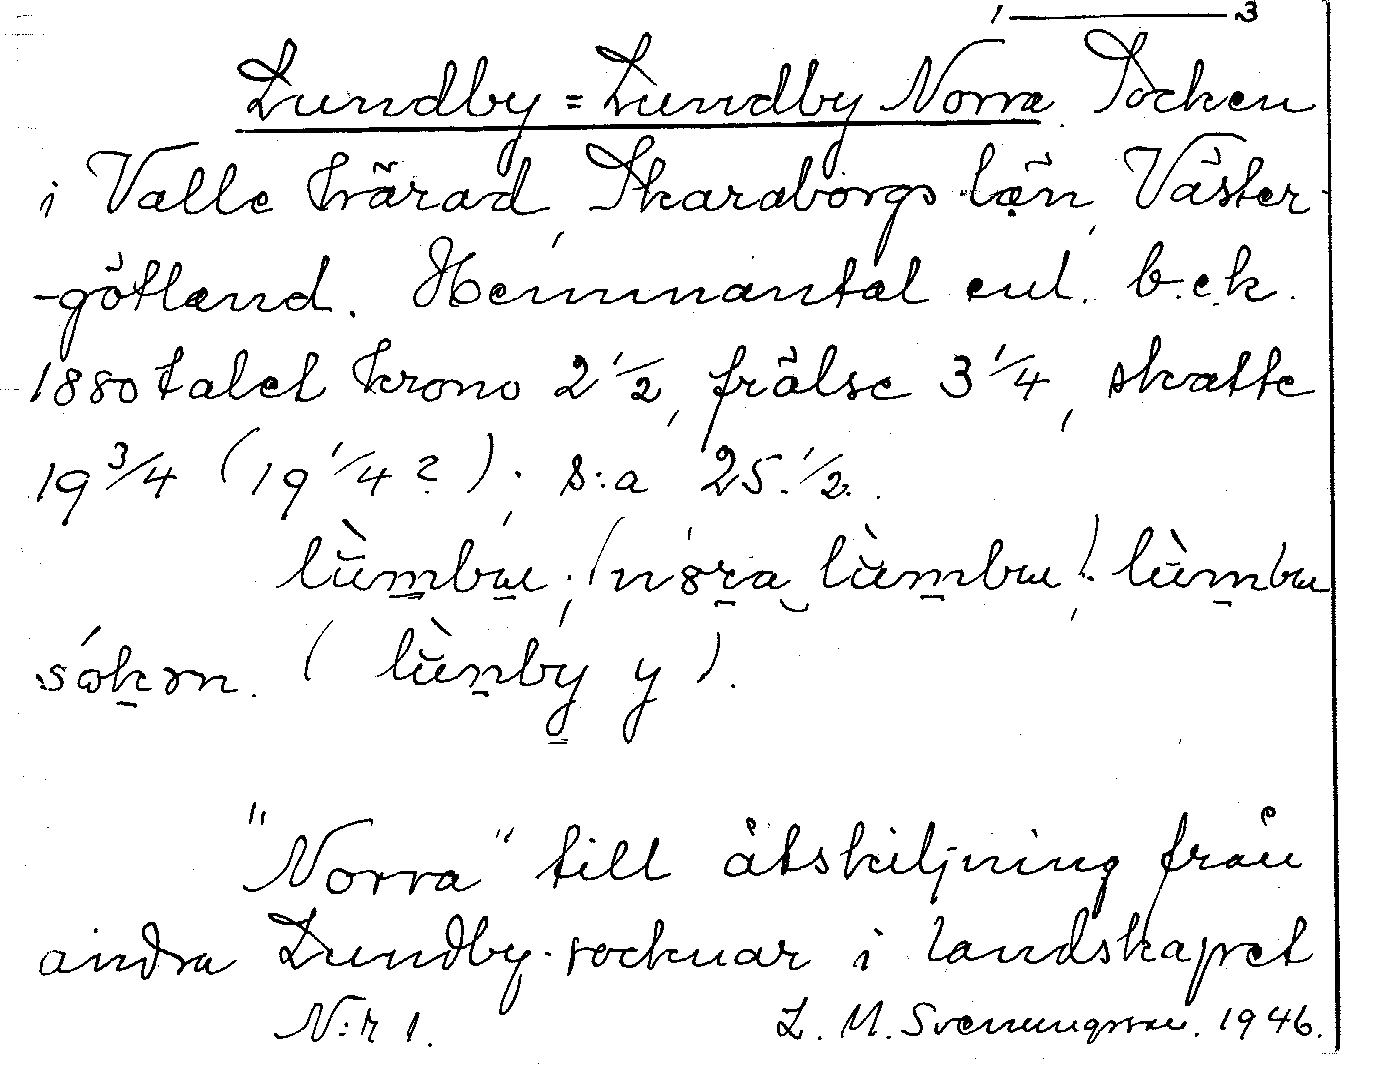 1 — 3
Lundby = Lundby Norra Socken
i Valle härad, Skaraborgs län, Väster-
-götland. Hemmantal enl. b.e.k.
1880 talet krono 2 1/2, frälse 3 1/4, skatte
19 3/4 (19 1/4 ?); s:a 25. 1/2.
(
y).
"Norra" till åtskiljning från
andra Lundby-socknar i landskapet
N:r 1. L. M. Svenungsson. 1946.